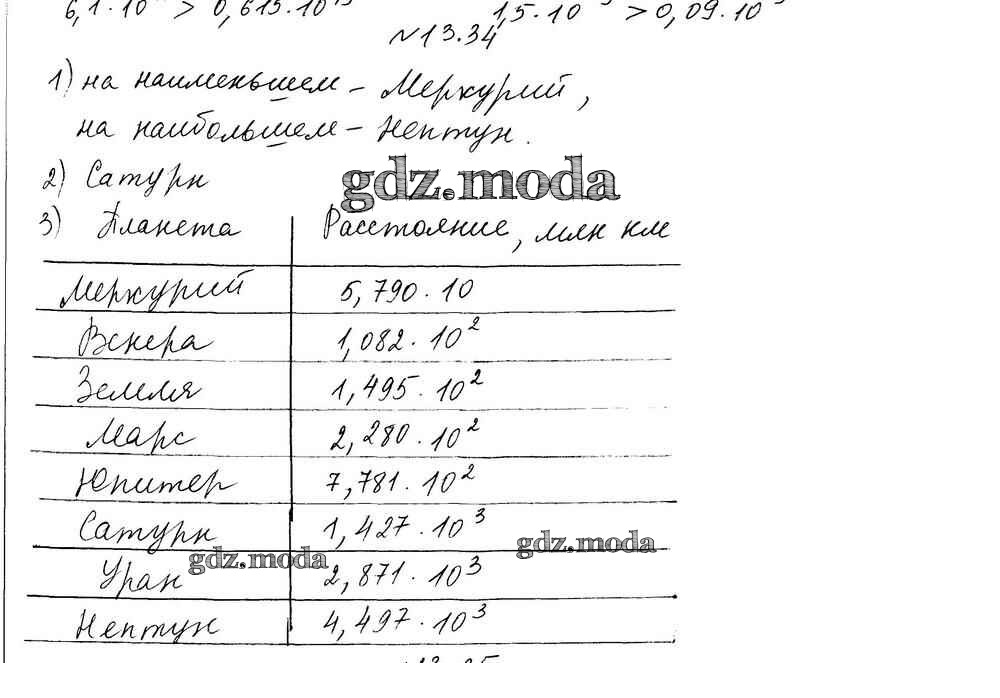 6,1·10 > 0,615·10¹³ 1,5·10 > 0,09·10
№13.34
1) на наименьшем – Меркурий,
на наибольшем – Нептун.
2) Сатурн
gdz.moda
3) Планета Расстояние, млн км
Меркурий 5,790·10
Венера 1,082·10²
Земля 1,495·10²
Марс 2,280·10²
Юпитер 7,781·10²
Сатурн 1,427·10³
gdz.moda gdz.moda
Уран 2,871·10³
Нептун 4,497·10³